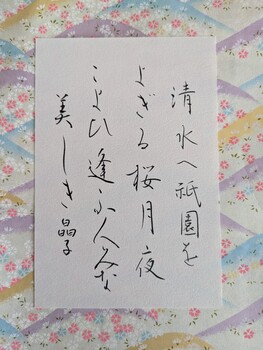 清水へ祇園を
よぎる桜月夜
こよひ逢ふ人みな
美しき 晶子